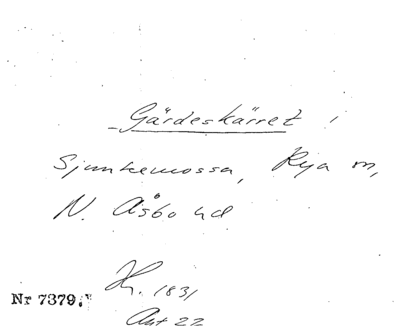 Gärdeskärret i
Sjunkemossa, Rya sn,
N. Åsbo hd
Hs. 1831
Nr 7379.
Akt 22